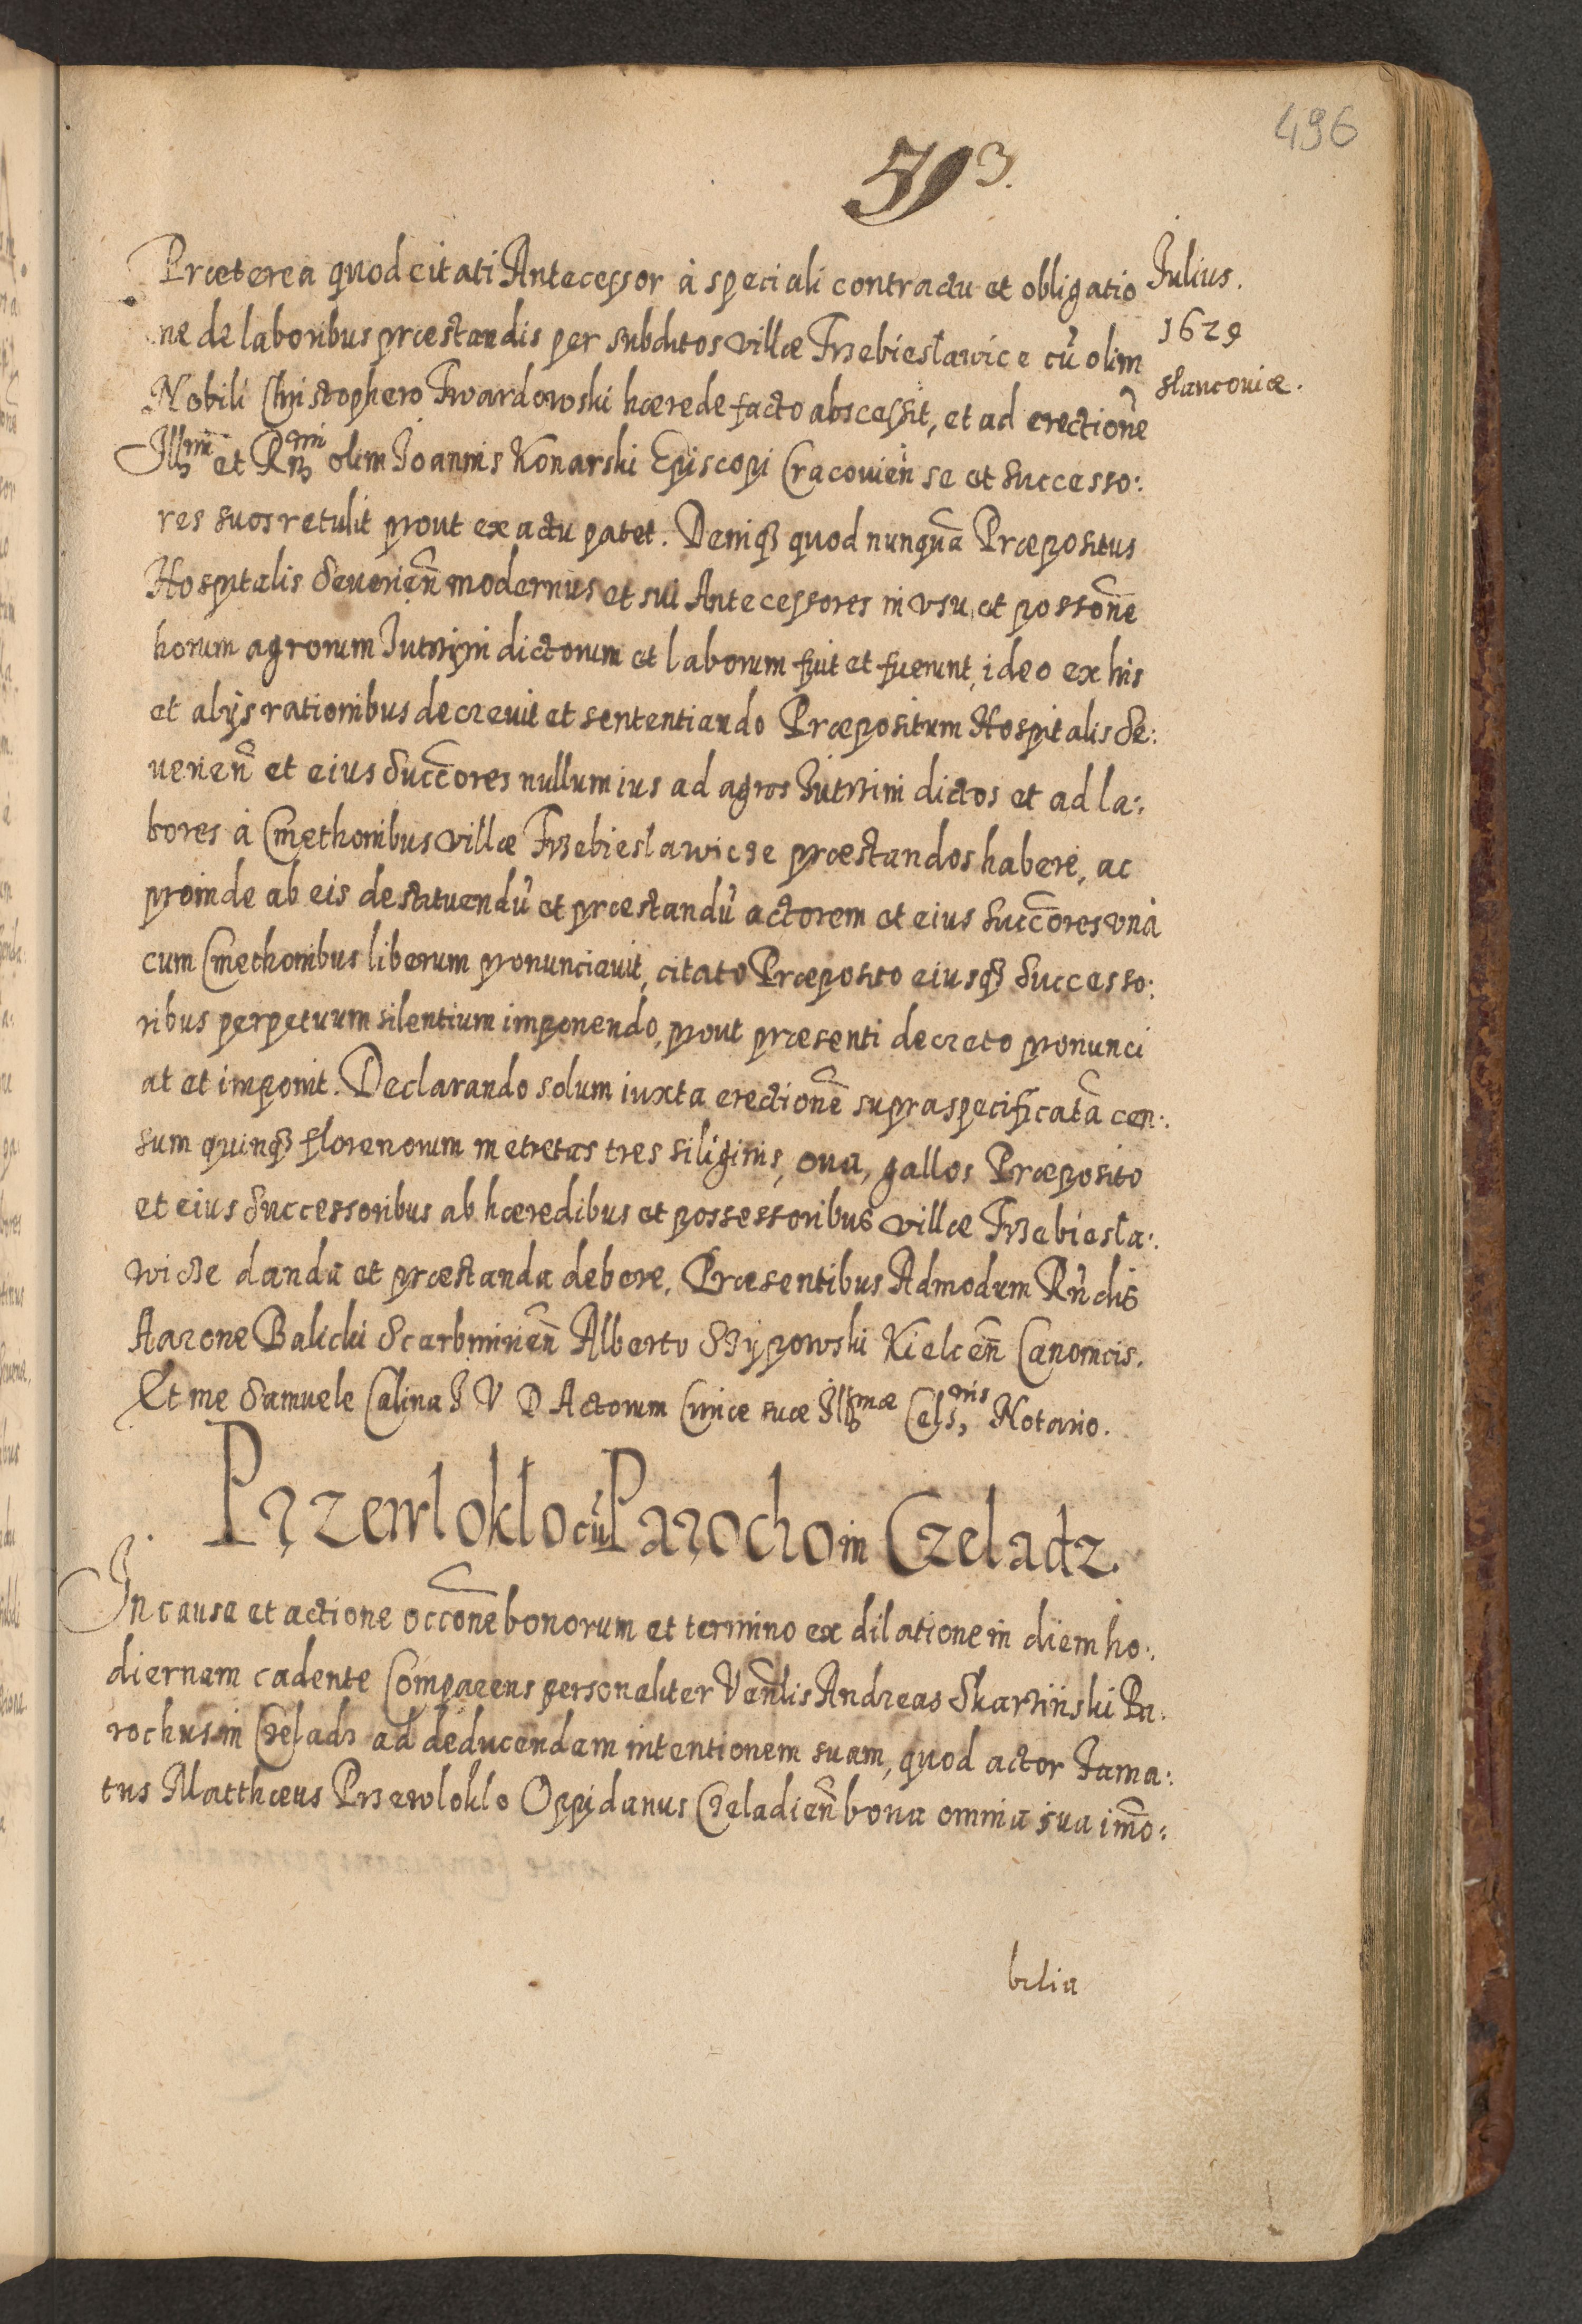 496
593.
Præterea quod citati Antecessor à speciali contractu et obligatio
Iulius.
1629
Slauconiæ.
ne de laboribus præstandis per subditos villæ Trzebiesławice cũ olim
Nobili Christophero Twardowski hærede facto abscessit, et ad erectionẽ
Illmi et Rmi olim Joannis Konarski Episcopi Cracouien̄ se et successo:
res suos retulit prout ex actu patet. Deniqȝ quod nunquã Præpositus
Hospitalis Seuerien̄ modernus et sui Antecessores in vsu et posson̄e
horum agrorum Jutrzyni dictorum et laborum fuit et fuerunt, ideo ex his
et alijs rationibus decreuit et sententiando Præpositum Hospitalis Se:
uerien̄ et eius Succ̄ores nullum ius ad agros Jutrzini dictos et ad la:
bores à Cmethonibus villæ Trzebieslawicze præstandos habere, ac
proinde ab eis destituendũ et præstandũ actorem et eius Succ̄ores vnà
cum Cmethonibus liberum pronunciauit, citato Præposito eiusqȝ Successo:
ribus perpetuum silentium imponendo, prout præsenti decreto pronunci
at et imponit. Declarando solum iuxta erectionẽ supraspecificatã cen:
sum quinqȝ florenorum metretas tres siliginis, oua, gallos Præposito
et eius Successoribus ab hæredibus et possessoribus villæ Trzebiesła:
wicze danda et præstanda debere. Præsentibus Admodum Rn̄dis
Aarone Balicki Scarbmirien̄ Alberto Szÿpowski Kielcen̄ Canonicis.
Et me Samuele Calina J V D Actorum Curiæ suæ Illmæ Celsnis Notario.
Przewlokło cũ Parocho in Czeladz.
In causa et actione occōne bonorum et termino ex dilatione in diem ho:
diernam cadente Comparens personaliter Ven̄lis Andreas Skarzinski Pa:
rochus in Czeladz ad deducendam intentionem suam, quod actor Fama:
tus Matthæus Przewlokło Oppidanus Czeladien̄ bona omnia sua im̄o:
bilia